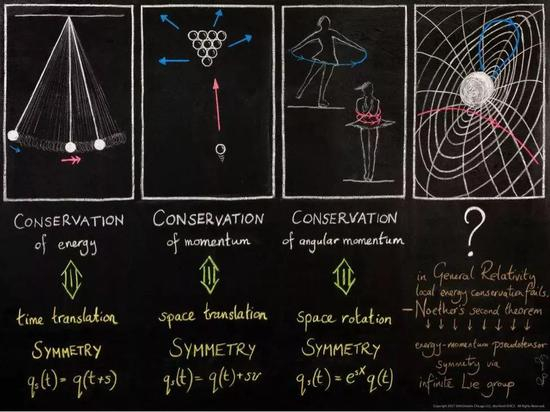 CONSERVATION
of energy
time translation
SYMMETRY
qₛ(t) = q(t+s)
CONSERVATION
of momentum
space translation
SYMMETRY
qₛ(t) = q(t)+sv
CONSERVATION
of angular momentum
space rotation
SYMMETRY
qₛ(t) = eˢˣ q(t)
?
in General Relativity
local energy conservation fails.
– Noether's second theorem
↓ ↓ ↓ ↓ ↓
energy-momentum pseudotensor
symmetry via
infinite Lie group